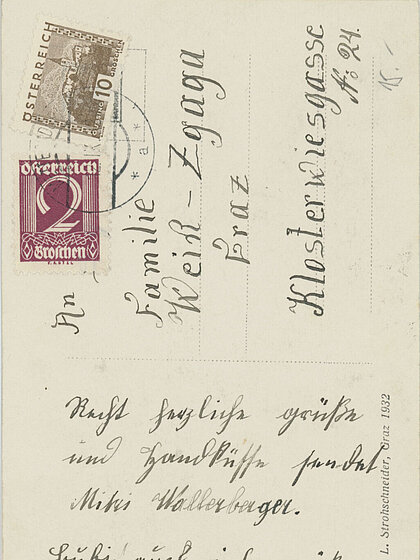 ÖSTERREICH
10
GROSCHEN
Österreich
2
Groschen
* a *
An
Familie
Weiß - Zgaga
Graz
Klosterwiesgasse
No: 24.
15.-
Recht herzliche grüße
und Handküsse sendet
Mitzi Wallerberger.
auch
L. Strohschneider, Graz 1932